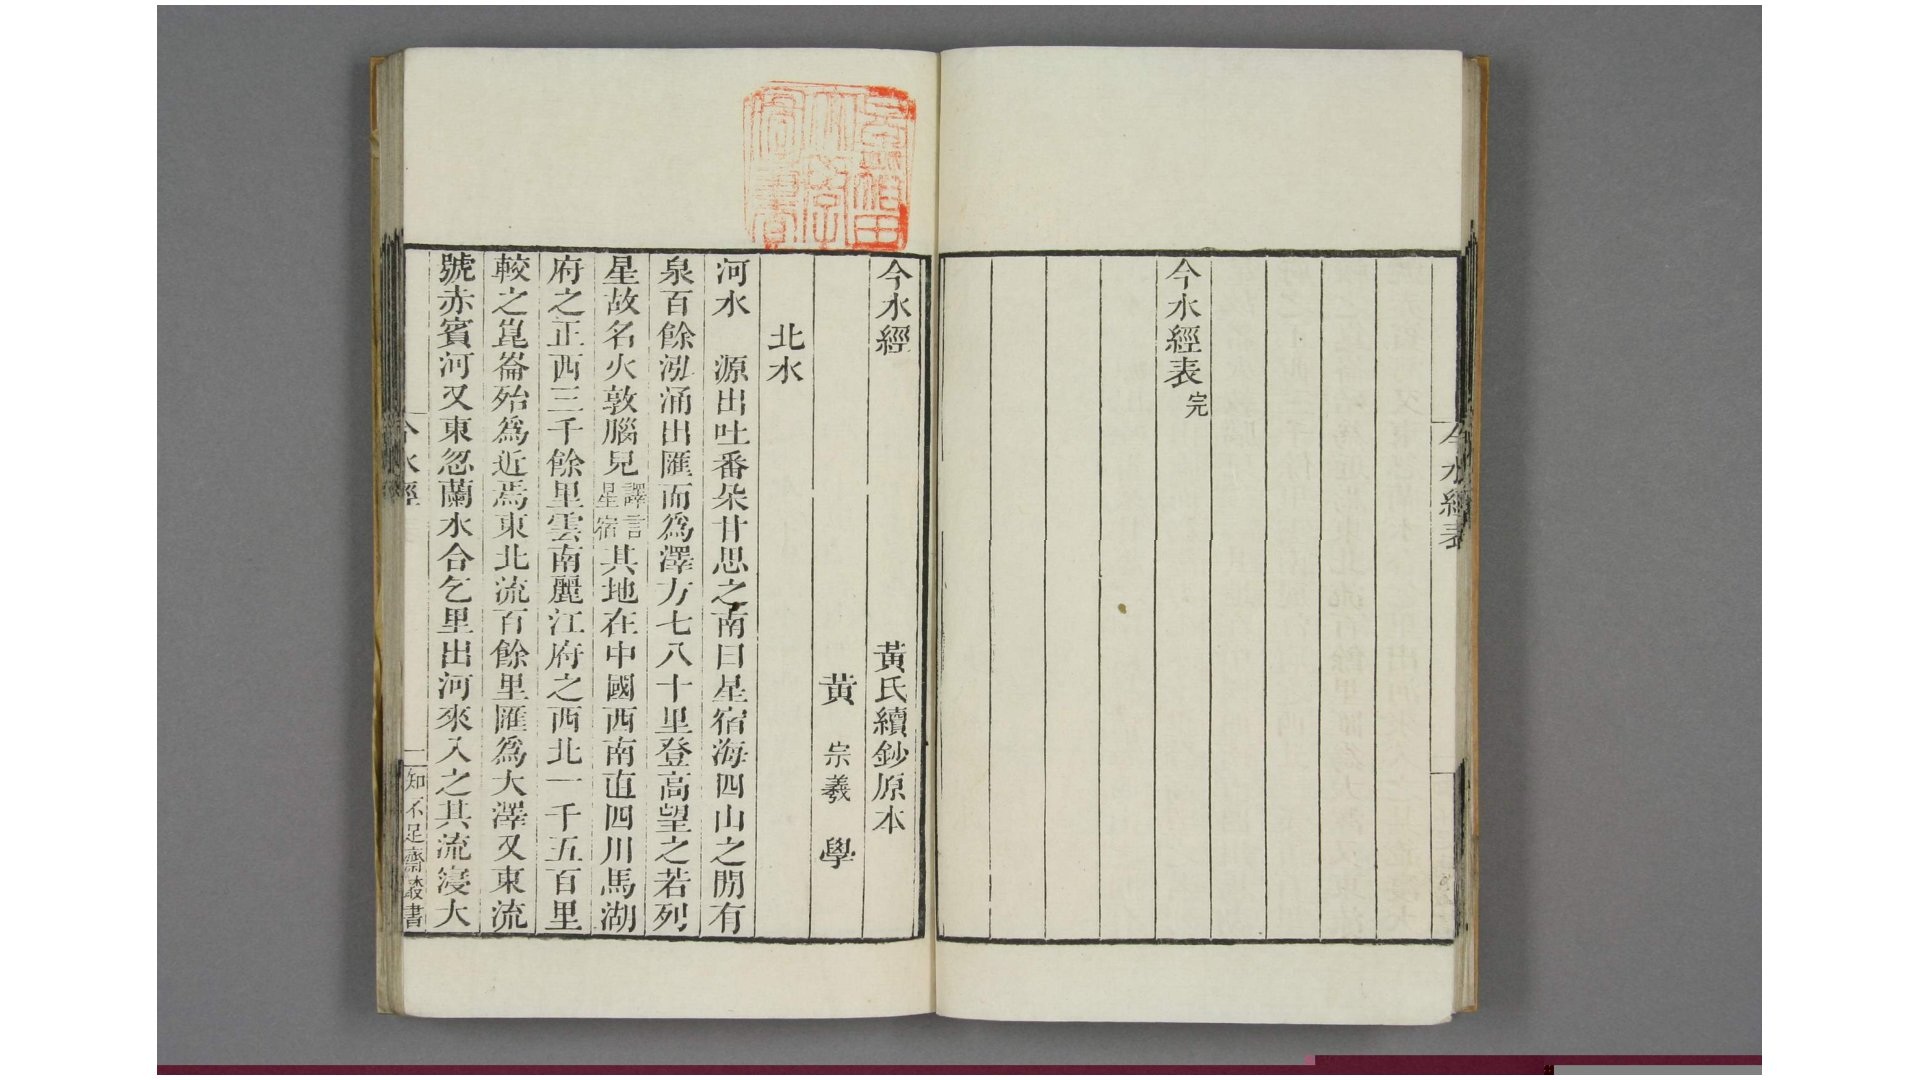 今水經表
今水經表完
今水經 黃氏續鈔原本
黃宗羲學
北水
河水 源出吐番朵甘思之南曰星宿海四山之閒有
泉百餘泓涌出匯而為澤方七八十里登高望之若列
星故名火敦腦兒譯言星宿其地在中國西南直四川馬湖
府之正西三千餘里雲南麗江府之西北一千五百里
較之崑崙殆為近焉東北流百餘里匯為大澤又東流
號赤賓河又東忽蘭水合乞里出河來入之其流寖大
今水經 一 知不足齋叢書